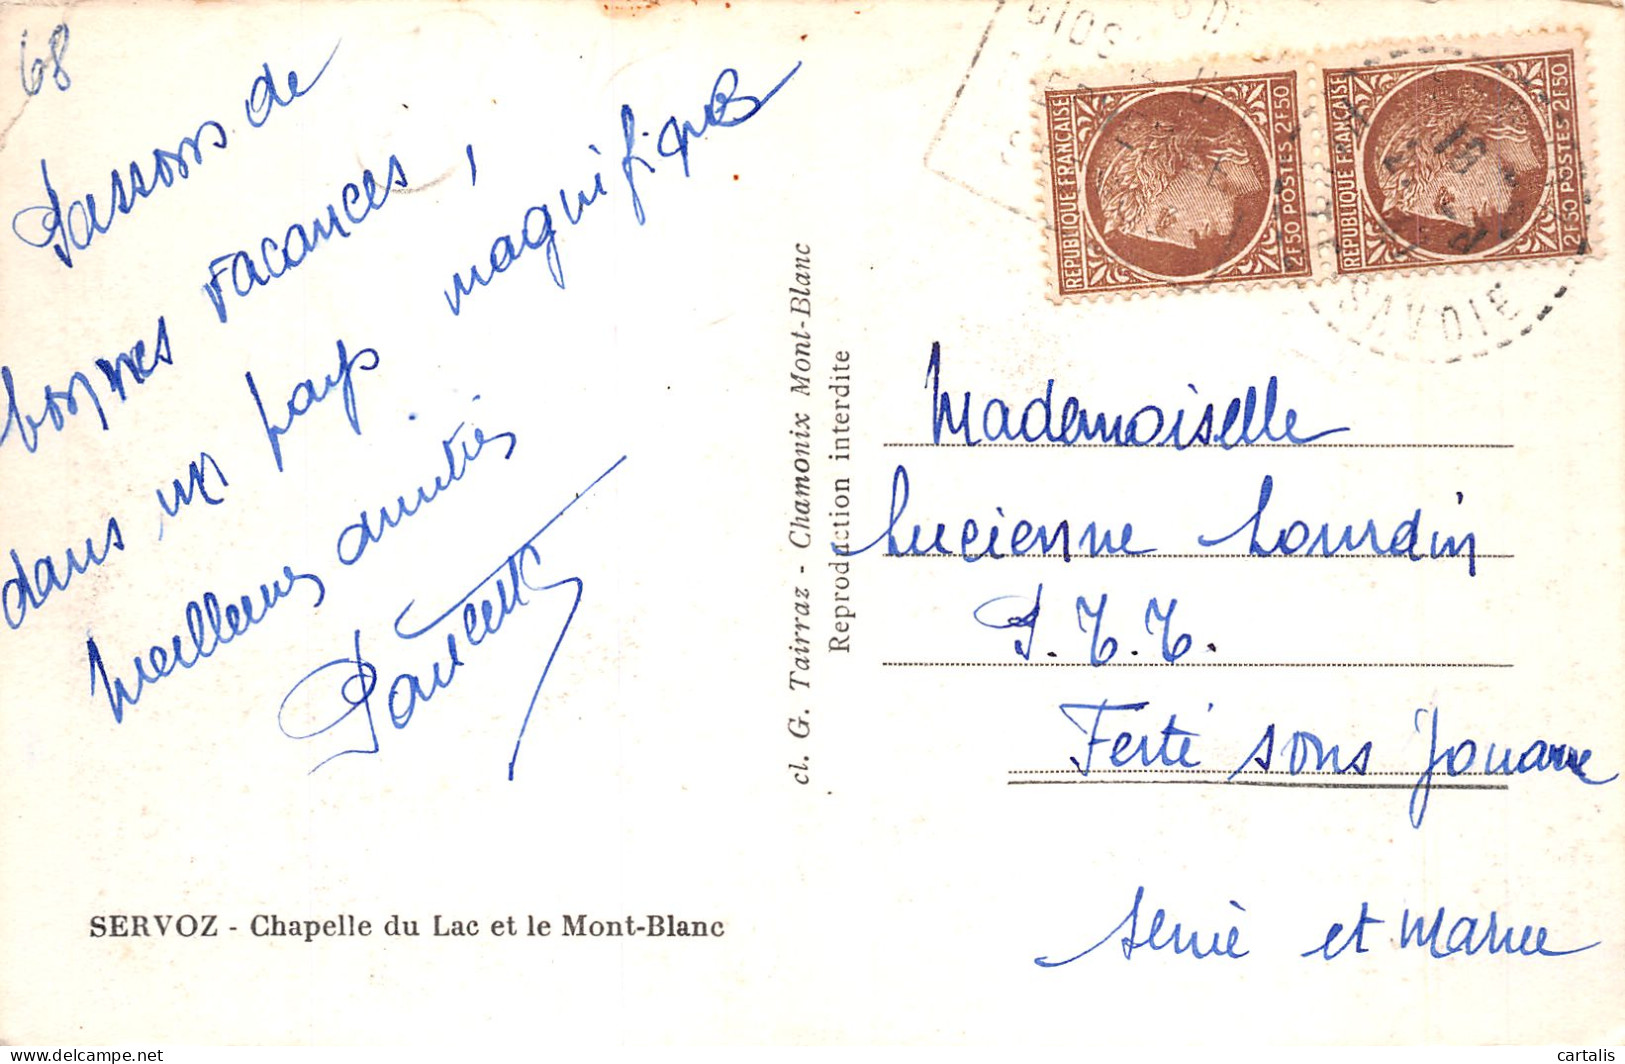 68
Passons de
bonnes vacances,
dans un pays magnifique
meilleures amitiés
Paulette
SERVOZ - Chapelle du Lac et le Mont-Blanc
cl. G. Tairraz - Chamonix Mont-Blanc
Reproduction interdite
REPUBLIQUE FRANÇAISE
2F50 POSTES 2F50
REPUBLIQUE FRANÇAISE
2F50 POSTES 2F50
SAVOIE
Mademoiselle
Lucienne Lourdin
P.T.T.
Ferté sous Jouarre
Seine et Marne
cartalis